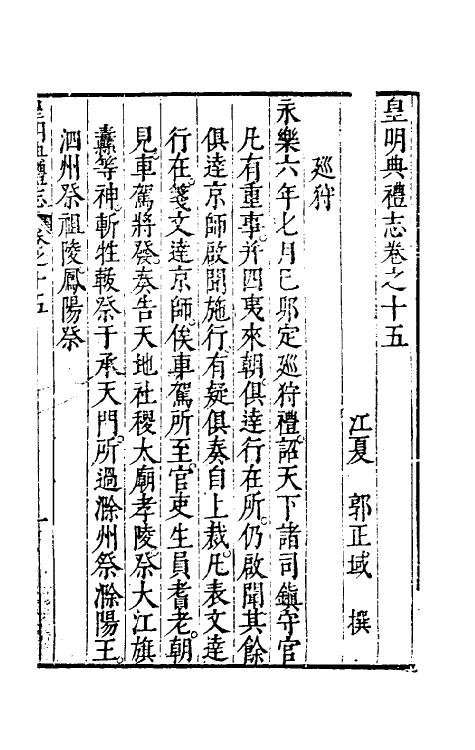 皇明典禮志卷之十五
江夏 郭正域 撰
廵狩
永樂六年七月己卯定廵狩禮詔天下諸司鎮守官
凡有重事并四夷來朝俱達行在所仍啟聞其餘
俱達京師啟聞施行有疑俱奏自上裁凡表文達
行在箋文達京師俟車駕所至官吏生員耆老朝
見車駕將發奏告天地社稷太廟孝陵祭大江旗
纛等神斬牲軷祭于承天門所過滁州祭滁陽王
泗州祭祖陵鳳陽祭
皇明典禮志 卷之十五 一